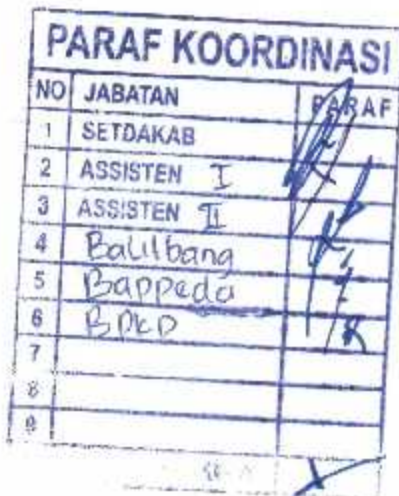 PARAF KOORDINASI
NO JABATAN PARAF
1 SETDAKAB
2 ASSISTEN I
3 ASSISTEN II
4 Balitbang
5 Bappeda
6 BPKD
7
8
9